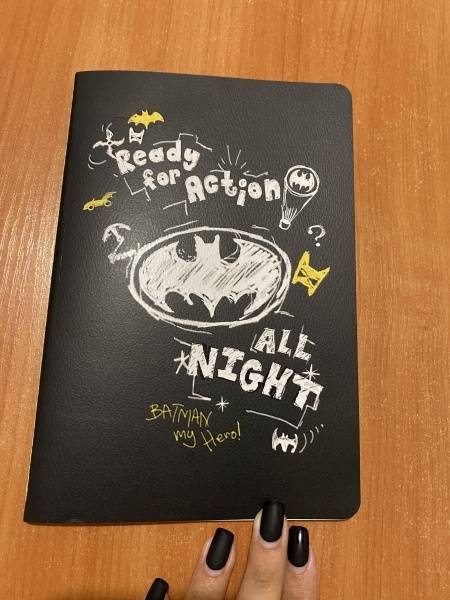 Ready
for Action
ALL
NIGHT
BATMAN
my Hero!